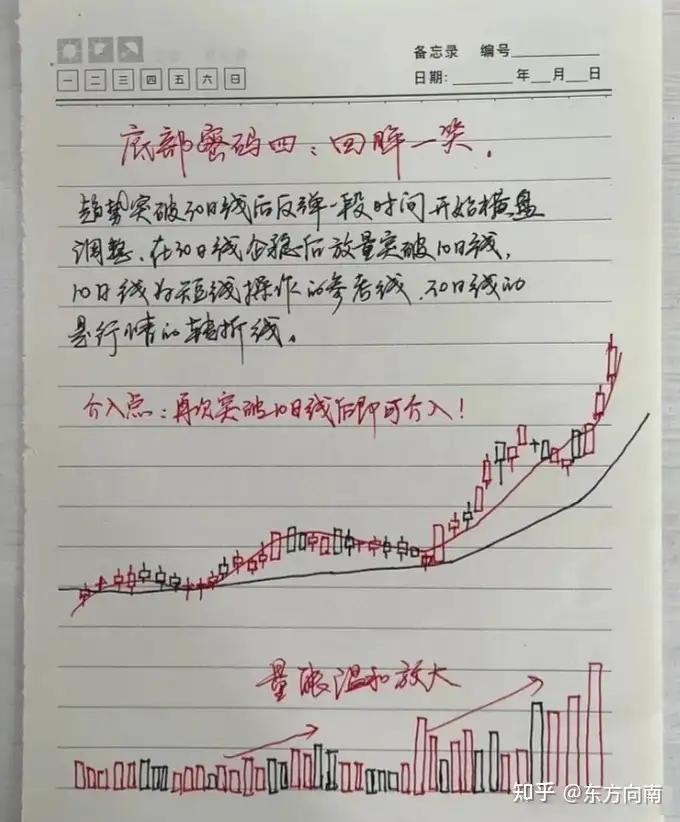 备忘录 编号
一 二 三 四 五 六 日
日期: 年 月 日
底部密码四：回眸一笑.
趋势突破30日线后反弹一段时间开始横盘
调整、在30日线企稳后放量突破10日线,
10日线为短线操作的参考线.30日线为
是行情的转折线。
介入点：再次突破10日线后即可介入！
量能温和放大
知乎 @东方向南